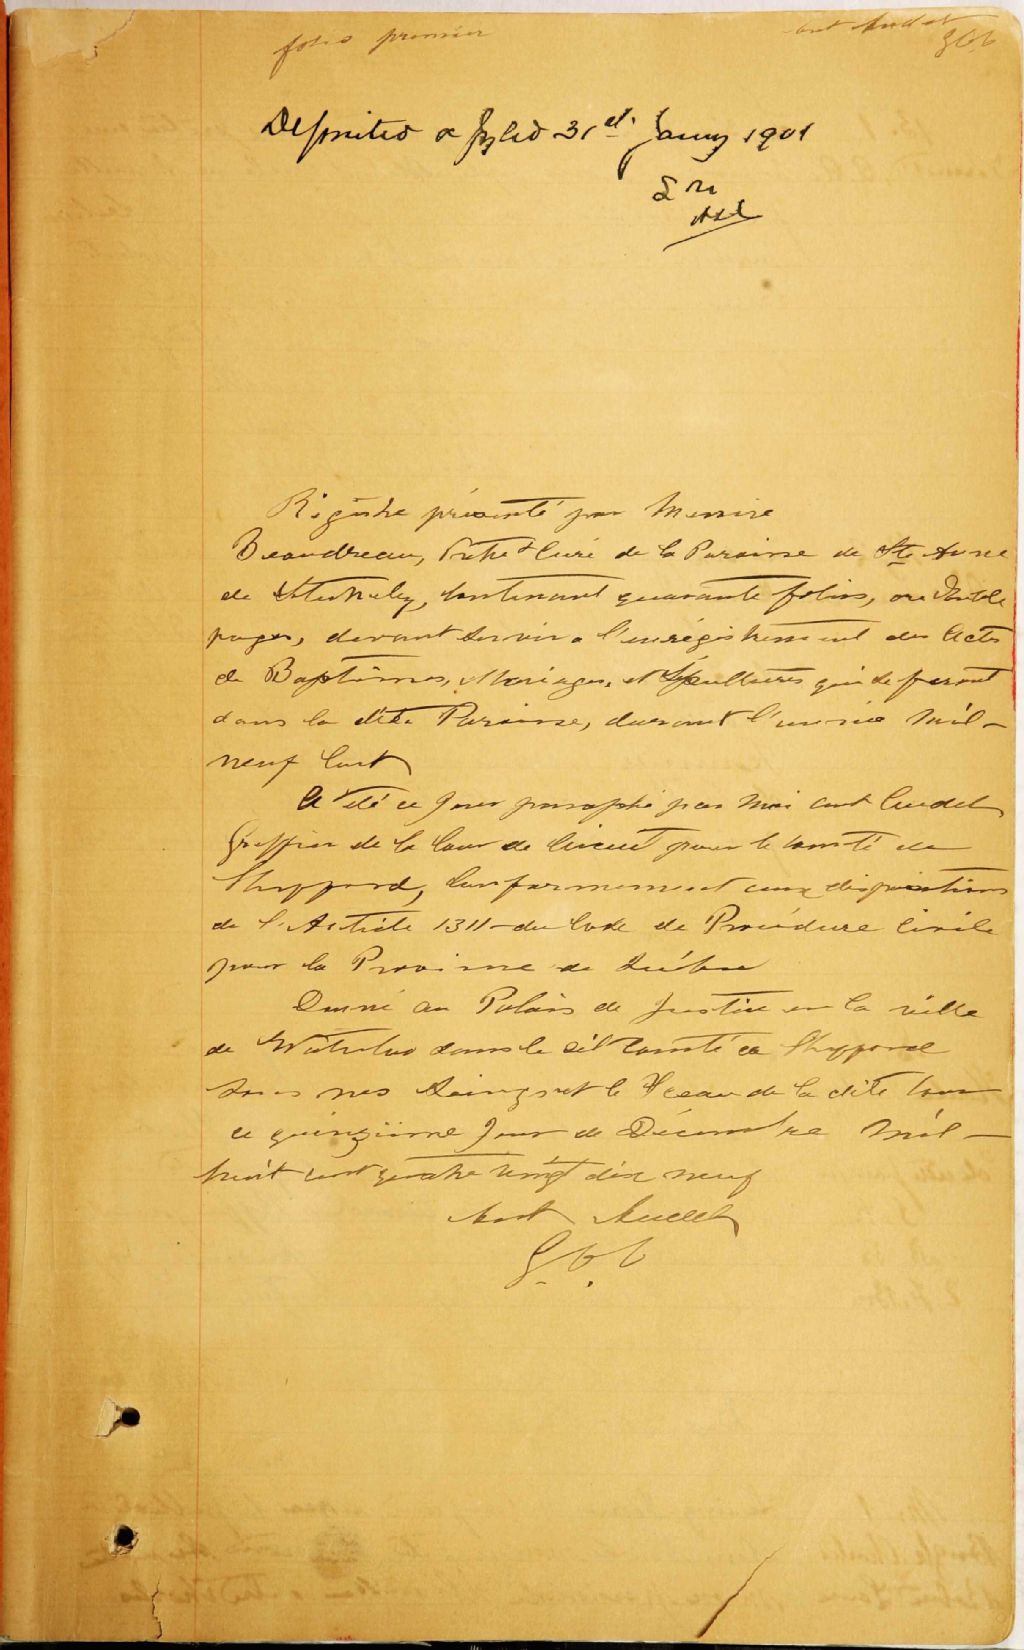 folio premier
Ant Audet
G.C.C
Deposited & fyled 31st Jany 1901
Régistre présenté par Messire
Beaudreau, Ptre & Curé de la Paroisse de Ste Anne
de Stukely, contenant quarante folios, ou double
pages, devant servir a l'enrégistrement des Actes
de Baptêmes, Mariages, et Sépultures qui se feront
dans la dite Paroisse, durant l'année Mil-
neuf Cent
A été ce Jour paraphé par Moi Ant Audet
Greffier de la Cour de Circuit pour le Comté de
Shefford, Conformement aux dispositions
de l'Article 1311 - du Code de Procédure Civile
pour la Province de Québec
Donné au Palais de Justice en la ville
de Waterloo dans le dit Comté de Shefford
sous nos Seings et le Sceau de la dite Cour
ce quinzième Jour de Décembre Mil -
huit cent quatre vingt dix neuf
Ant Audet
G.C.C